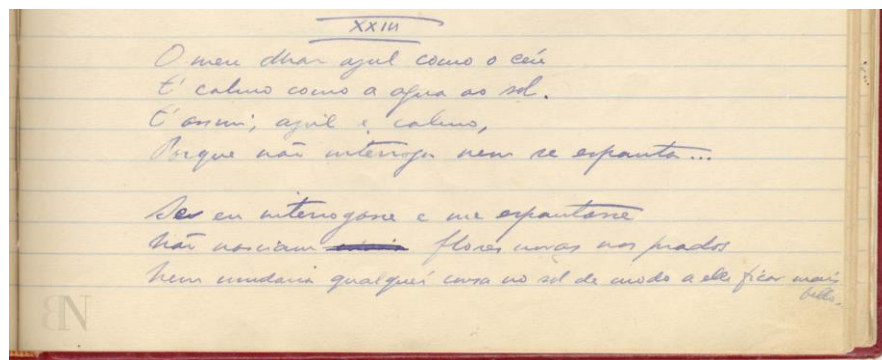 XXIII
O meu olhar azul como o céu
É calmo como a agua ao sol.
É assim, azul e calmo,
Porque não interroga nem se espanta...
Se eu interrogasse e me espantasse
Não nasciam flores novas nos prados
Nem mudaria qualquer cousa no sol de modo a elle ficar mais
bello.
BN